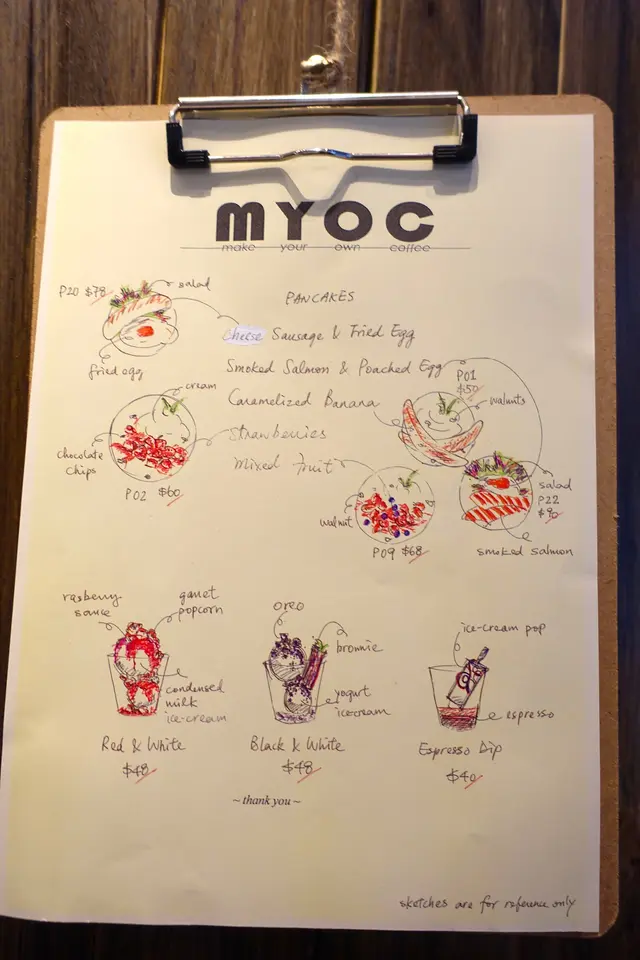 MYOC
make your own coffee
PANCAKES
P20 $78
salad
fried egg
Cheese Sausage & Fried Egg
Smoked Salmon & Poached Egg
Caramelized Banana
Strawberries
Mixed fruit
cream
chocolate
chips
P02 $60
P01
$50
walnuts
walnut
P09 $68
salad
P22
smoked salmon
rasberry
sauce
garret
popcorn
condensed
milk
ice-cream
Red & White
$48
oreo
brownie
yogurt
ice-cream
Black & White
$48
ice-cream pop
espresso
Espresso Dip
$40
~ thank you ~
sketches are for reference only